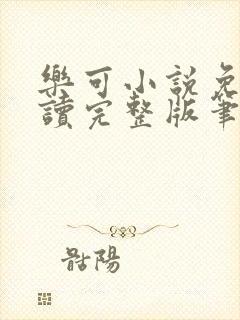 樂可小説免
讀完整版筆
骷陽